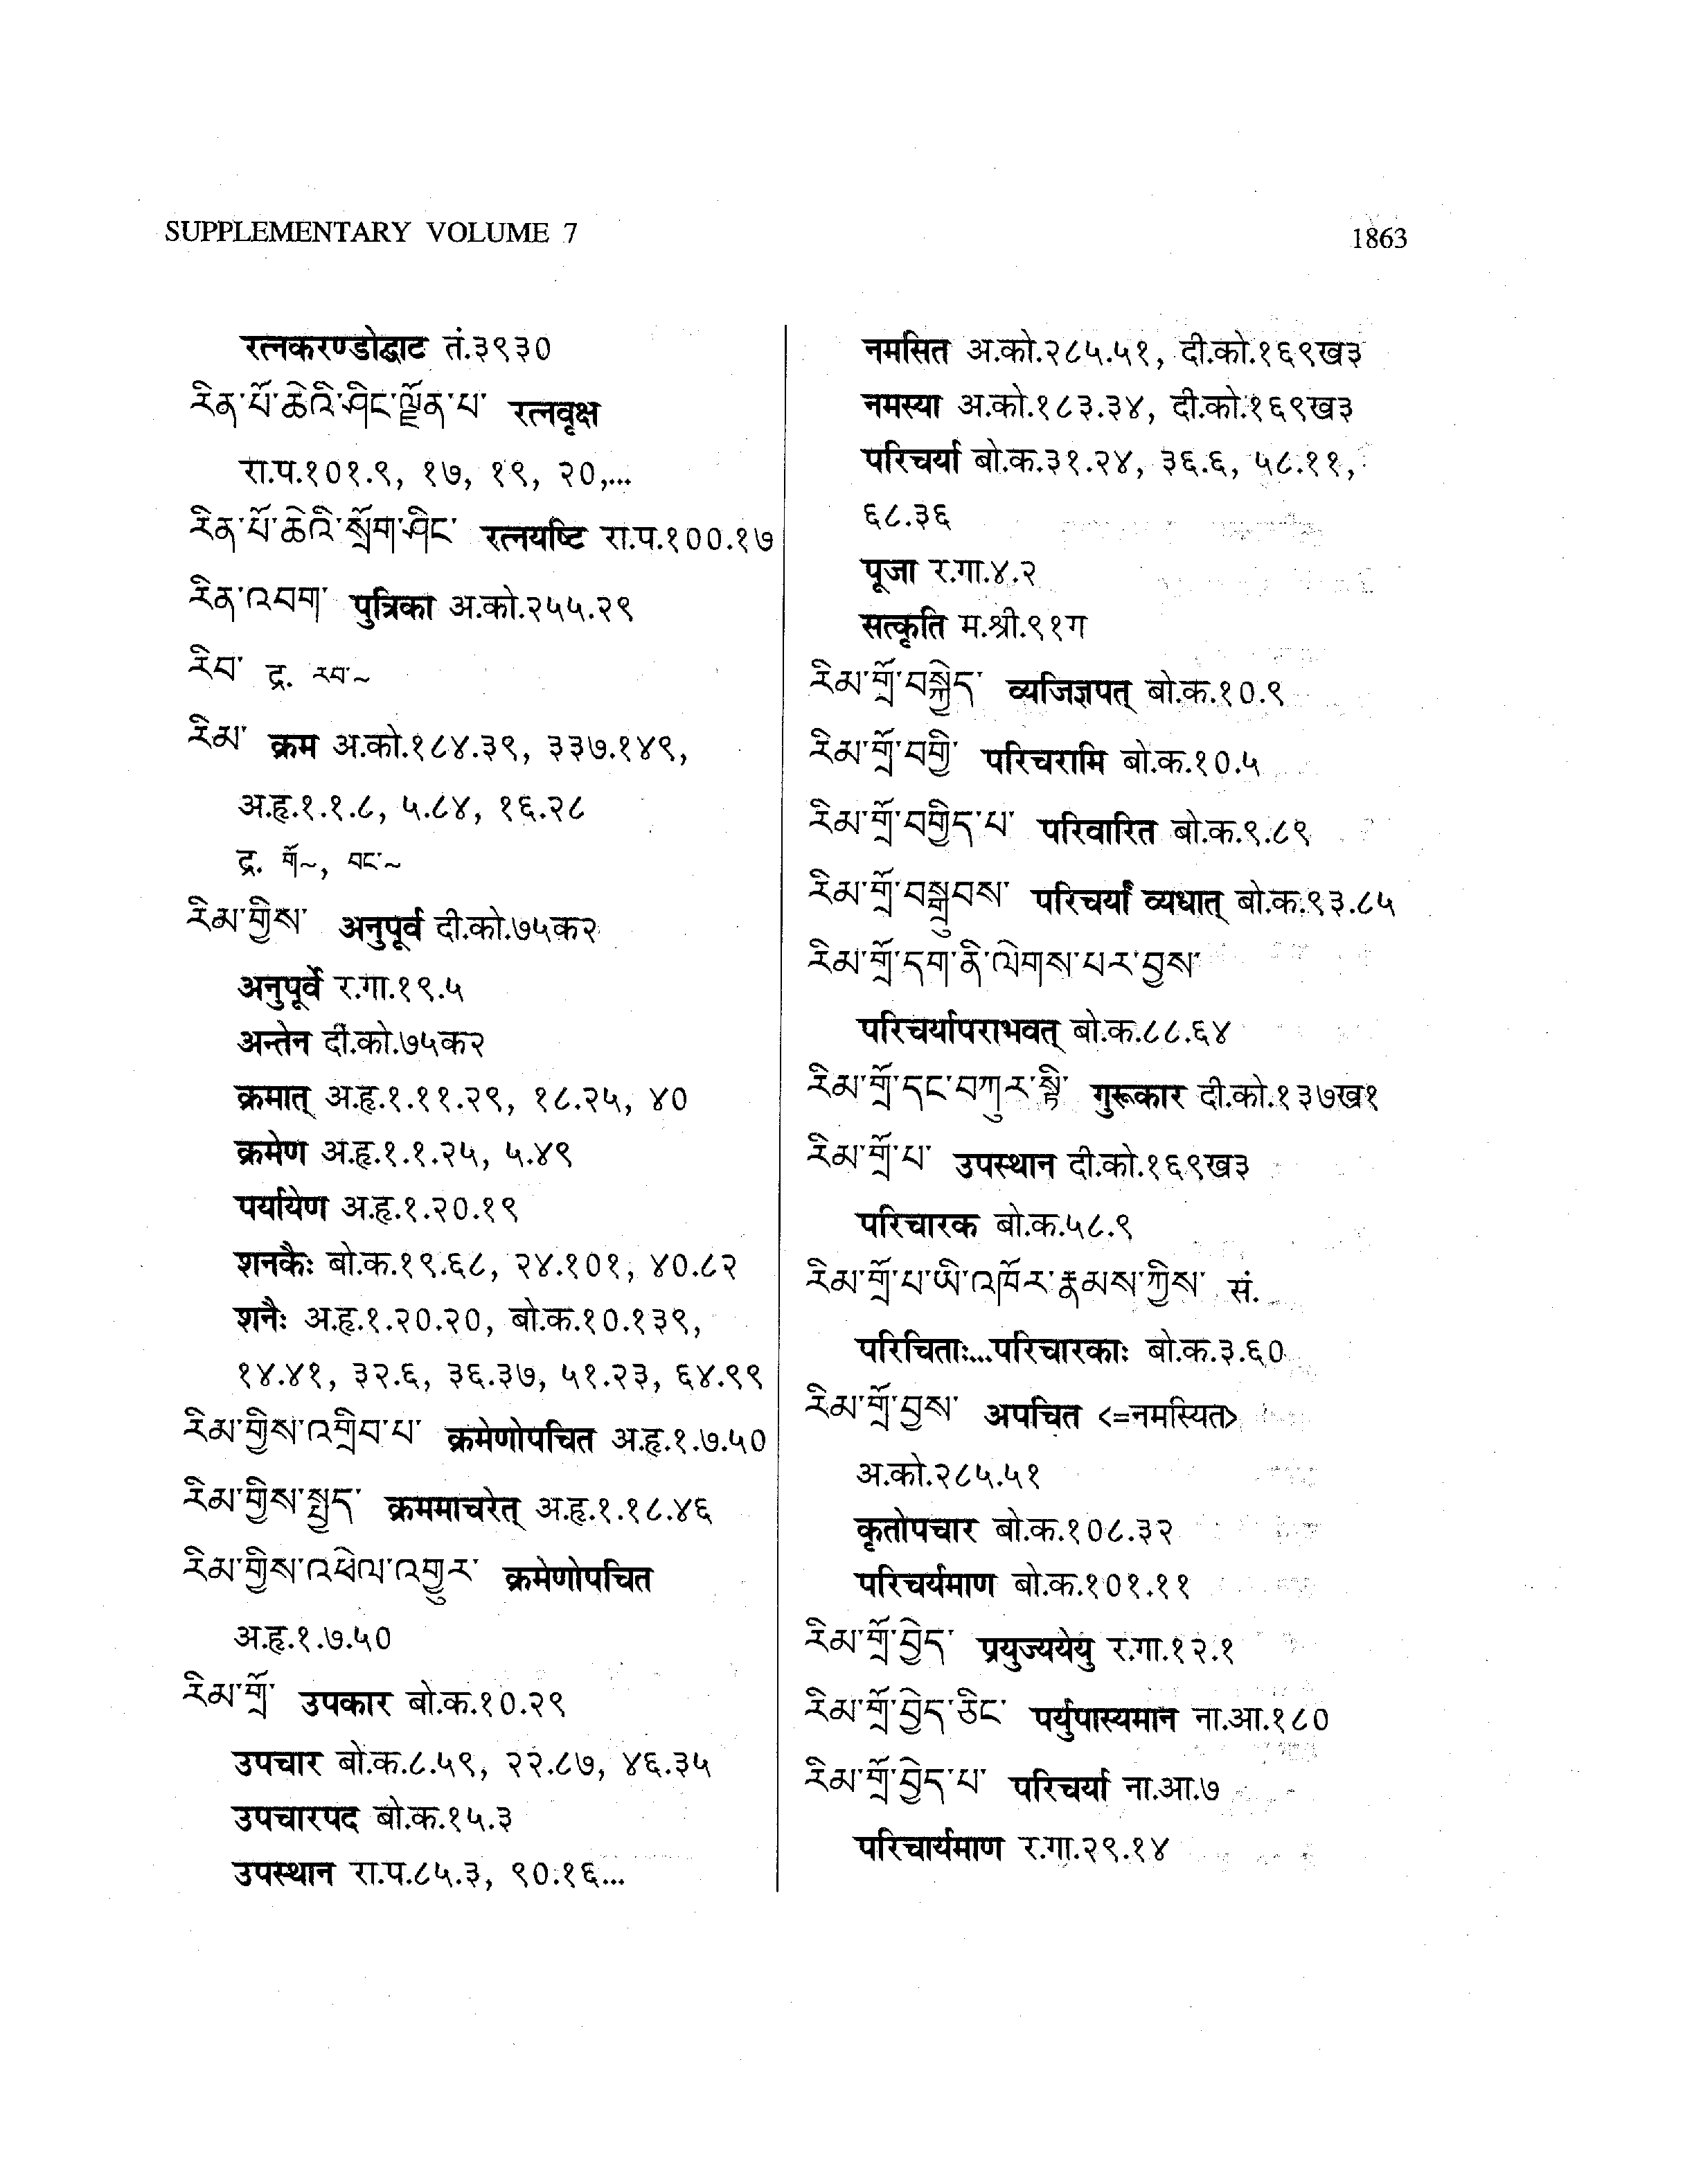 SUPPLEMENTARY VOLUME 7
1863
रत्नकरण्डोद्घाट तं.३९३०
རིན་པོ་ཆེའི་ཤིང་ལྗོན་པ་ रत्नवृक्ष
रा.प.१०१.९, १७, १९, २०,...
རིན་པོ་ཆེའི་སྲོག་ཤིང་ रत्नयष्टि रा.प.१००.१७
རིན་འབག་ पुत्रिका अ.को.२५५.२९
རིབ་ द्र. རབ་~
རིམ་ क्रम अ.को.१८४.३९, ३३७.१४९,
अ.हृ.१.१.८, ५.८४, १६.२८
द्र. གོ~, བང་~
རིམ་གྱིས་ अनुपूर्व दी.को.७५क२
अनुपूर्वे र.गा.१९.५
अन्तेन दी.को.७५क२
क्रमात् अ.हृ.१.११.२९, १८.२५, ४०
क्रमेण अ.हृ.१.१.२५, ५.४९
पर्यायेण अ.हृ.१.२०.१९
शनकैः बो.क.१९.६८, २४.१०१, ४०.८२
शनैः अ.हृ.१.२०.२०, बो.क.१०.१३९,
१४.४१, ३२.६, ३६.३७, ५१.२३, ६४.९९
རིམ་གྱིས་འགྲིབ་པ་ क्रमेणोपचित अ.हृ.१.७.५०
རིམ་གྱིས་སྤྱད་ क्रममाचरेत् अ.हृ.१.१८.४६
རིམ་གྱིས་འཕེལ་འགྱུར་ क्रमेणोपचित
अ.हृ.१.७.५०
རིམ་གྲོ་ उपकार बो.क.१०.२९
उपचार बो.क.८.५९, २२.८७, ४६.३५
उपचारपद बो.क.१५.३
उपस्थान रा.प.८५.३, ९०.१६...
नमसित अ.को.२८५.५१, दी.को.१६९ख३
नमस्या अ.को.१८३.३४, दी.को.१६९ख३
परिचर्या बो.क.३१.२४, ३६.६, ५८.११,
६८.३६
पूजा र.गा.४.२
सत्कृति म.श्री.९१ग
རིམ་གྲོ་བསྐྱེད་ व्यजिज्ञपत् बो.क.१०.९
རིམ་གྲོ་བགྱི་ परिचरामि बो.क.१०.५
རིམ་གྲོ་བགྱིད་པ་ परिवारित बो.क.९.८९
རིམ་གྲོ་བསྒྲུབས་ परिचर्यां व्यधात् बो.क.९३.८५
རིམ་གྲོ་དག་ནི་ལེགས་པར་བྱས་
परिचर्यापराभवत् बो.क.८८.६४
རིམ་གྲོ་དང་བཀུར་སྟི་ गुरूकार दी.को.१३७ख१
རིམ་གྲོ་པ་ उपस्थान दी.को.१६९ख३
परिचारक बो.क.५८.९
རིམ་གྲོ་པ་ཡི་འཁོར་རྣམས་ཀྱིས་ सं.
परिचिताः...परिचारकाः बो.क.३.६०
རིམ་གྲོ་བྱས་ अपचित <=नमस्यित>
अ.को.२८५.५१
कृतोपचार बो.क.१०८.३२
परिचर्यमाण बो.क.१०१.११
རིམ་གྲོ་བྱེད་ प्रयुज्ययेयु र.गा.१२.१
རིམ་གྲོ་བྱེད་ཅིང་ पर्युपास्यमान ना.आ.१८०
རིམ་གྲོ་བྱེད་པ་ परिचर्या ना.आ.७
परिचार्यमाण र.गा.२९.१४